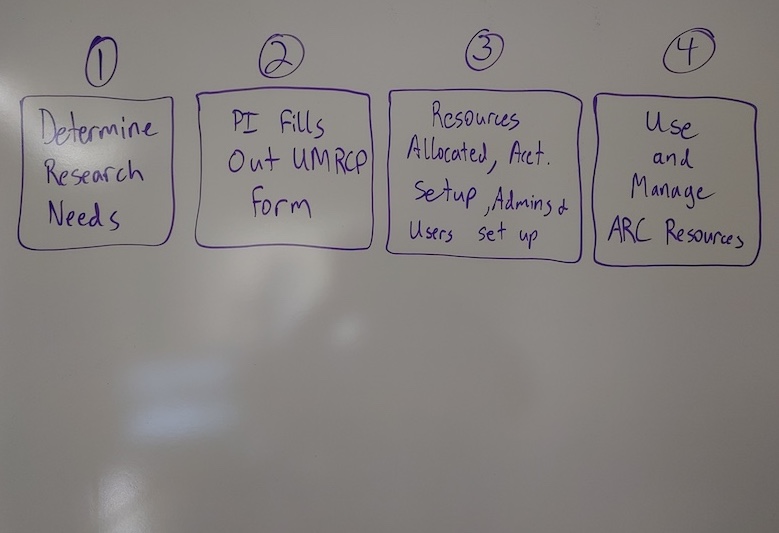 1
Determine
Research
Needs
2
PI Fills
Out UMRCP
form
3
Resources
Allocated, Acct.
Setup, Admins &
Users set up
4
Use
and
Manage
ARC Resources